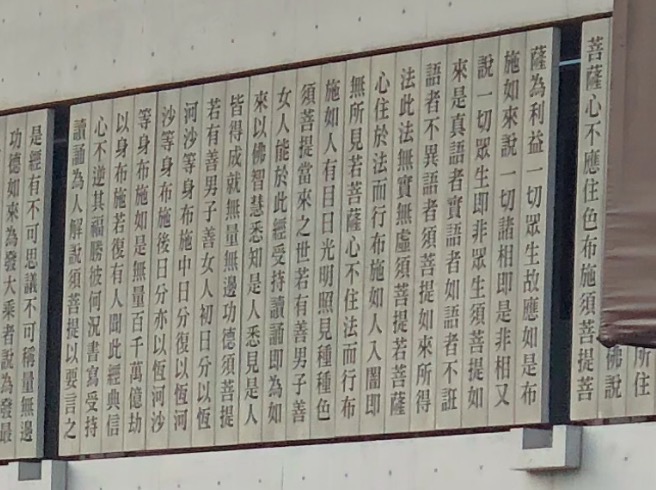 所住
佛說
菩薩心不應住色布施須菩提菩
薩為利益一切眾生故應如是布
施如來說一切諸相即是非相又
說一切眾生即非眾生須菩提如
來是真語者實語者如語者不誑
語者不異語者須菩提如來所得
法此法無實無虛須菩提若菩薩
心住於法而行布施如人入闇即
無所見若菩薩心不住法而行布
施如人有目日光明照見種種色
須菩提當來之世若有善男子善
女人能於此經受持讀誦即為如
來以佛智慧悉知是人悉見是人
皆得成就無量無邊功德須菩提
若有善男子善女人初日分以恆
河沙等身布施中日分復以恆河
沙等身布施後日分亦以恆河沙
等身布施如是無量百千萬億劫
以身布施若復有人聞此經典信
心不逆其福勝彼何況書寫受持
讀誦為人解說須菩提以要言之
是經有不可思議不可稱量無邊
功德如來為發大乘者說為發最